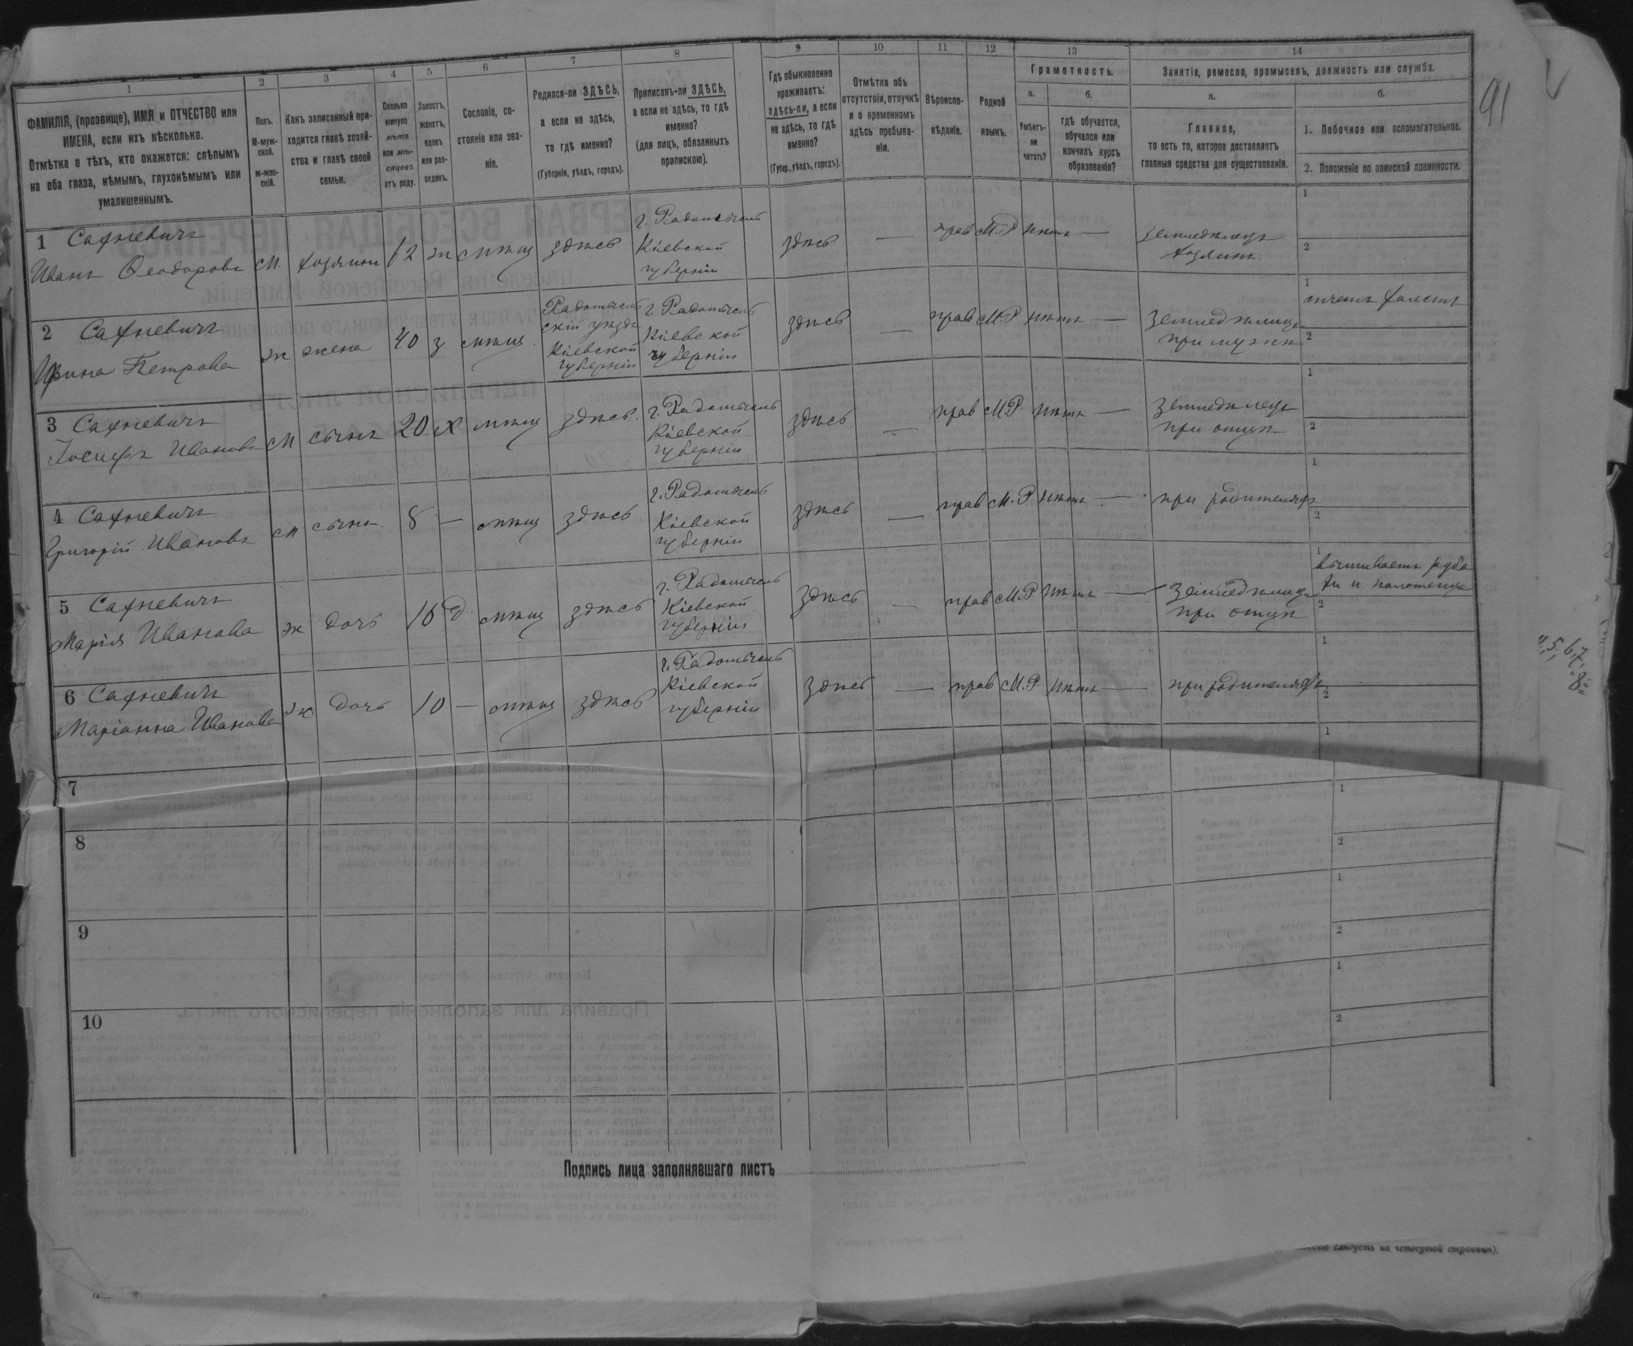 91
1 2 3 4 5 6 7 8 9 10 11 12 13 14
ФАМИЛІЯ, (прозвище), ИМЯ и ОТЧЕСТВО или
ИМЕНА, если ихъ нѣсколько.
Отмѣтка о тѣхъ, кто окажется: слѣпымъ
на оба глаза, нѣмымъ, глухонѣмымъ или
умалишеннымъ.
Полъ.
М-муж-
ской.
Ж-жен-
скій.
Какъ записанный при-
ходится главѣ хозяй-
ства и главѣ своей
семьи.
Сколько
минуло
лѣтъ
или мѣ-
сяцевъ
отъ роду.
Холостъ,
женатъ,
вдовъ
или раз-
веденъ.
Сословіе, со-
стояніе или зва-
ніе.
Родился-ли ЗДѢСЬ,
а если не здѣсь,
то гдѣ именно?
(Губернія, уѣздъ, городъ).
Приписанъ-ли ЗДѢСЬ,
а если не здѣсь, то гдѣ
именно?
(для лицъ, обязанныхъ
припискою).
Гдѣ обыкновенно
проживаетъ:
здѣсь-ли, а если
не здѣсь, то гдѣ
именно?
(Губер., уѣздъ, городъ).
Отмѣтка объ
отсутствіи, отлучкѣ
и о временномъ
здѣсь пребыва-
ніи.
Вѣроиспо-
вѣданіе.
Родной
языкъ.
Грамотность.
а.
Умѣетъ-
ли
читать?
б.
гдѣ обучается,
обучался или
кончилъ курсъ
образованія?
Занятіе, ремесло, промыселъ, должность или служба.
а.
Главное,
то есть то, которое доставляетъ
главныя средства для существованія.
б.
1. Побочное или вспомогательное.
2. Положеніе по воинской повинности.
1 Сахневичъ
Иванъ Феодоровъ м хозяинъ 62 ж мѣщ здѣсь г. Радомысль
Кіевской
губерніи здѣсь — прав М.Р нѣтъ — земледѣлецъ
хозяинъ
1
2
2 Сахневичъ
Ирина Петрова ж жена 40 з мѣщ
Радомысль
скій уѣздъ
Кіевской
губерніи
г. Радомысль
Кіевской
губерніи здѣсь — прав М.Р нѣтъ — земледѣлица
при мужѣ
1
2
3 Сахневичъ
Іосифъ Ивановъ м сынъ 20 х мѣщ здѣсь г. Радомысль
Кіевской
губерніи здѣсь — прав М.Р нѣтъ — земледѣлецъ
при отцѣ
1
2
4 Сахневичъ
Григорій Ивановъ м сынъ 8 — мѣщ здѣсь г. Радомысль
Кіевской
губерніи здѣсь — прав М.Р нѣтъ — при родителяхъ
1
2
5 Сахневичъ
Марія Иванова ж дочь 16 д мѣщ здѣсь г. Радомысль
Кіевской
губерніи здѣсь — прав М.Р нѣтъ — земледѣлица
при отцѣ
1 вышиваетъ руба
хи и полотенца
2
6 Сахневичъ
Маріанна Иванова ж дочь 10 — мѣщ здѣсь г. Радомысль
Кіевской
губерніи здѣсь — прав М.Р нѣтъ — при родителяхъ
1
2
7
1
8
1
2
9
1
2
10
1
2
Подпись лица заполнявшаго листъ
на четвертой страницѣ).